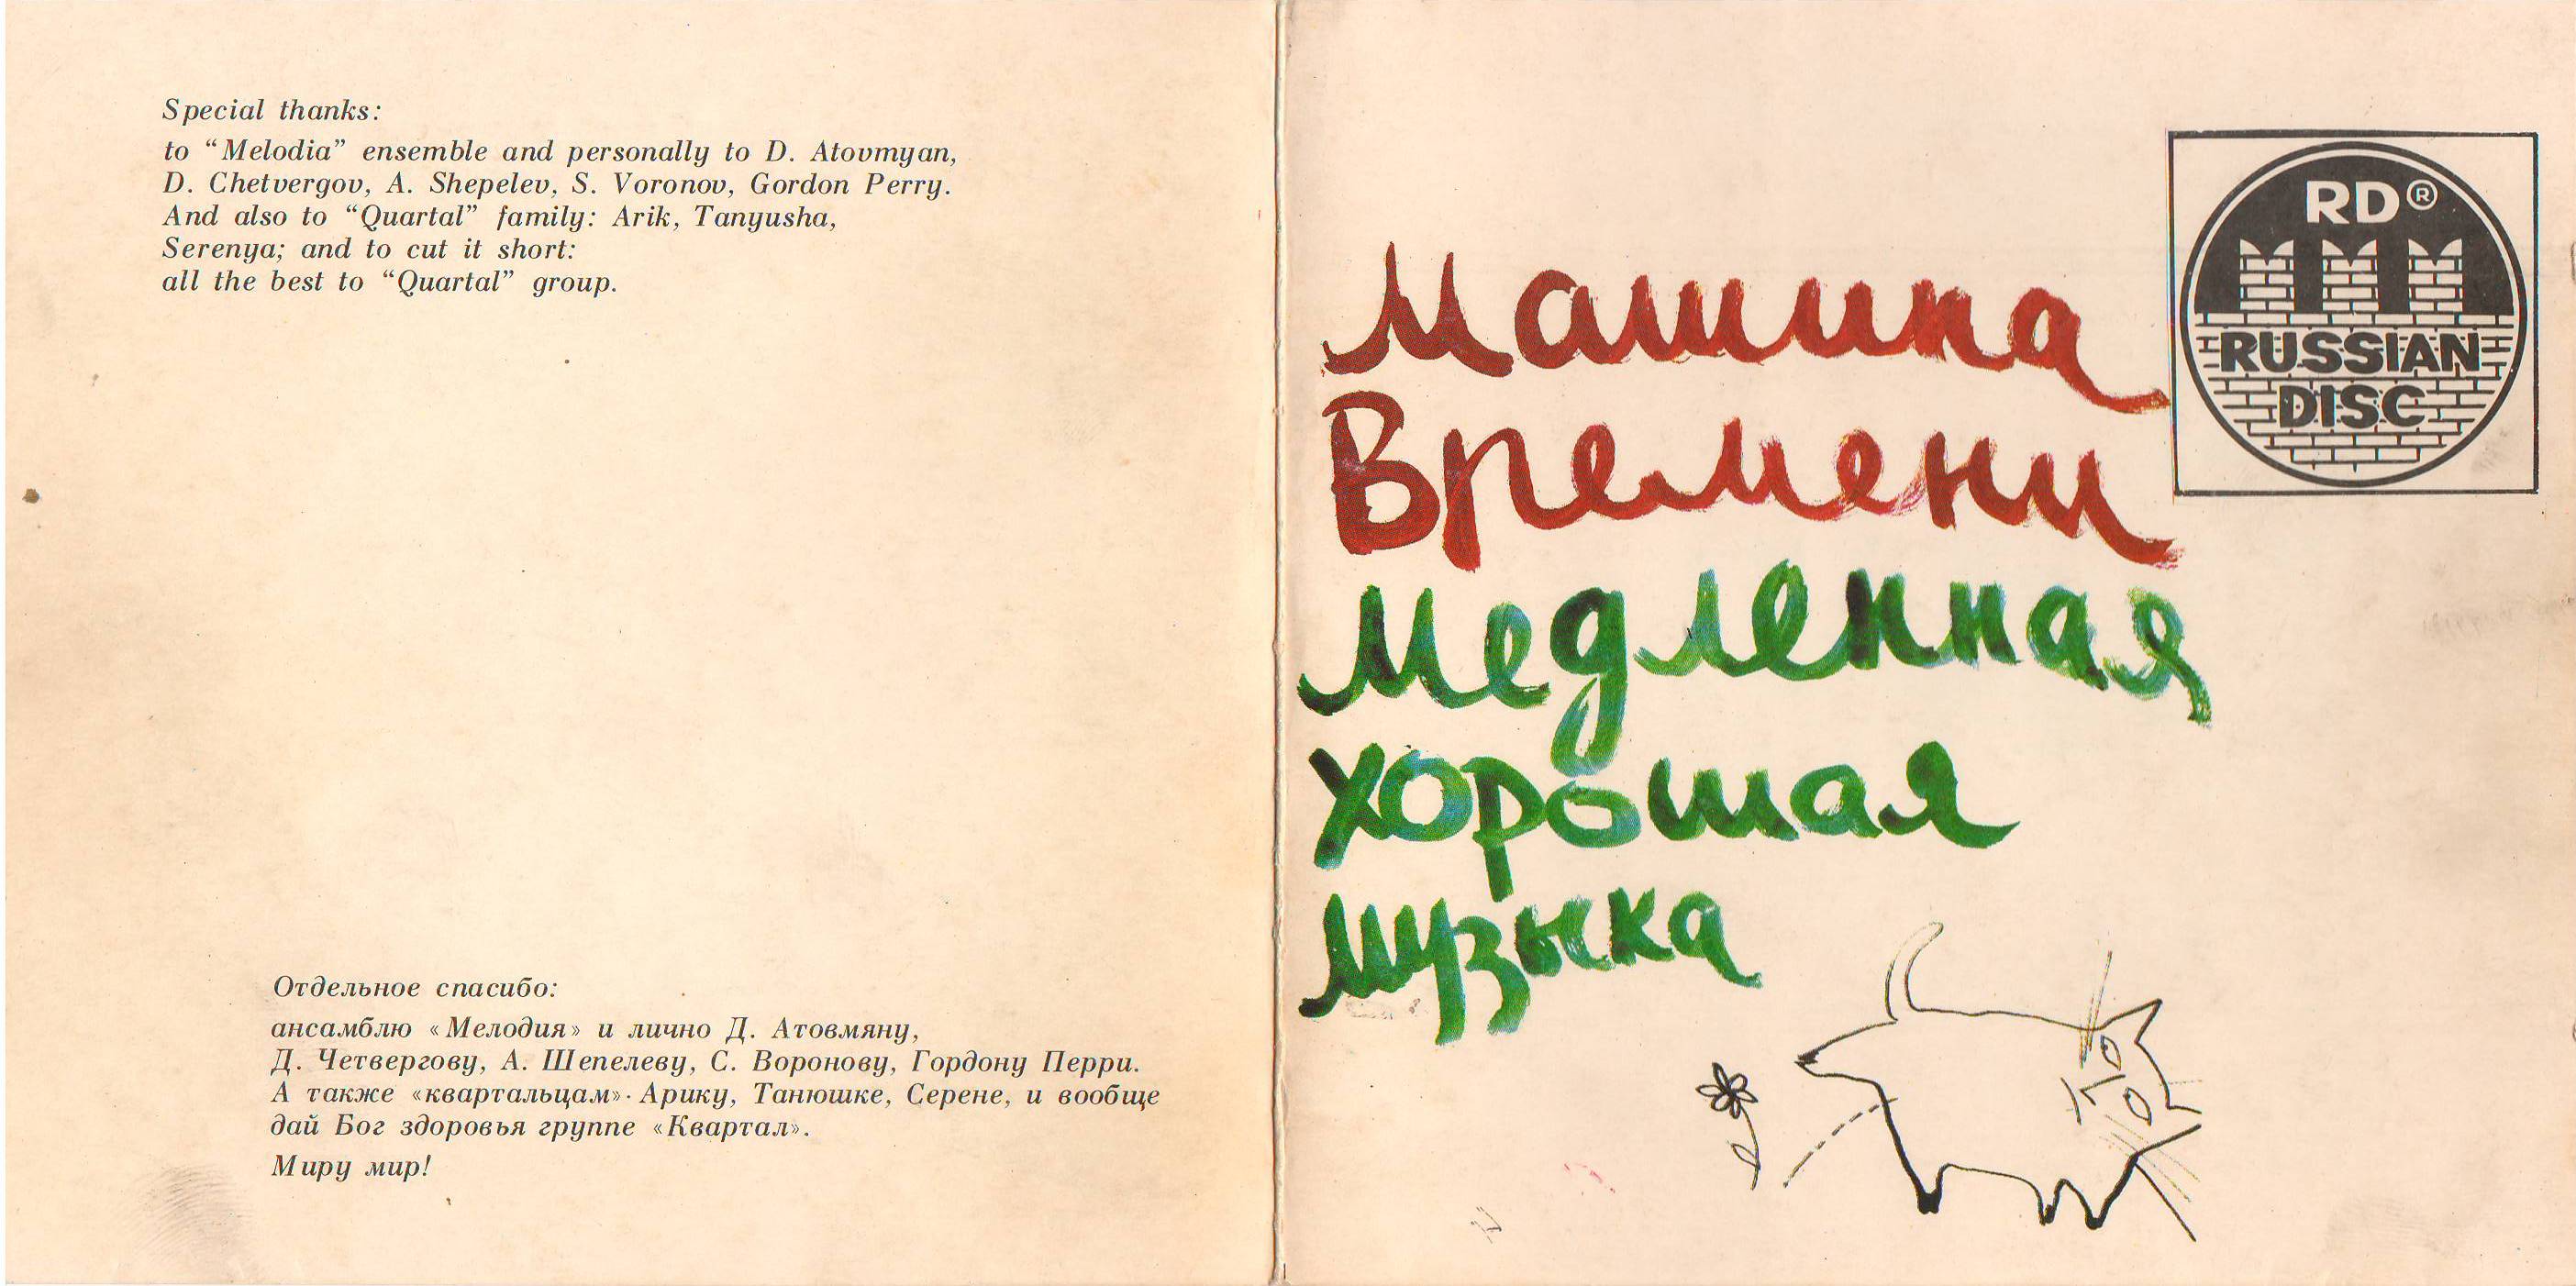 Special thanks:
to “Melodia” ensemble and personally to D. Atovmyan,
D. Chetvergov, A. Shepelev, S. Voronov, Gordon Perry.
And also to “Quartal” family: Arik, Tanyusha,
Serenya; and to cut it short:
all the best to “Quartal” group.
Отдельное спасибо:
ансамблю «Мелодия» и лично Д. Атовмяну,
Д. Четвергову, А. Шепелеву, С. Воронову, Гордону Перри.
А также «квартальцам»· Арику, Танюшке, Серене, и вообще
дай Бог здоровья группе «Квартал».
Миру мир!
Машина
Времени
медленная
хорошая
музыка
RD®
RUSSIAN
DISC